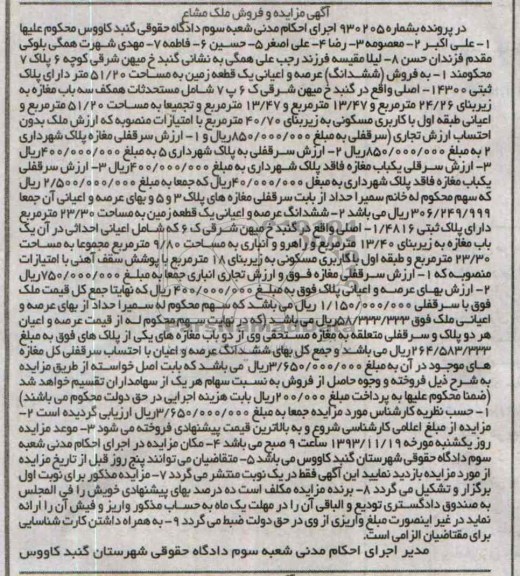 آگهی مزایده و فروش ملک مشاع
در پرونده بشماره ۹۳۰۲۰۵ اجرای احکام مدنی شعبه سوم دادگاه حقوقی گنبد کاووس محکوم علیها
۱- علی اکبر ۲- معصومه ۳- رضا ۴- علی اصغر ۵- حسین ۶- فاطمه ۷- مهدی شهرت همگی بلوکی
مقدم فزندان حسن ۸- لیلا مقیسه فرزند رجب علی همگی به نشانی گنبد خ میهن شرقی کوچه ۶ پلاک ۷
محکومند ۱- به فروش (ششدانگ) عرصه و اعیانی یک قطعه زمین به مساحت ۵۱/۲۰ متر دارای پلاک
ثبتی ۱۴۳۰۰- اصلی واقع در گنبد خ میهن شرقی ک ۶ پ ۷ شامل مستحدثات همکف سه باب مغازه به
زیربنای ۲۴/۲۶ مترمربع و ۱۳/۴۷ مترمربع و ۱۳/۴۷ مترمربع و تجمیعا به مساحت ۵۱/۲۰ مترمربع و
اعیانی طبقه اول با کاربری مسکونی به زیربنای ۴۰/۷۰ مترمربع با امتیازات منصوبه که ارزش ملک بدون
احتساب ارزش تجاری (سرقفلی به مبلغ ۸۵۰/۰۰۰/۰۰۰ریال و ۱- ارزش سرقفلی مغازه پلاک شهرداری
۲ به مبلغ ۸۵۰/۰۰۰/۰۰۰ریال ۲- ارزش سرقفلی به پلاک شهرداری ۵ به مبلغ ۴۰۰/۰۰۰/۰۰۰ریال
۳- ارزش سرقلی یکباب مغازه فاقد پلاک شهرداری به مبلغ ۴۰۰/۰۰۰/۰۰۰ریال ۳- ارزش سرقفلی
یکباب مغازه فاقد پلاک شهرداری به مبغل ۴۰۰/۰۰۰/۰۰۰ریال که جمعا به مبلغ ۲/۵۰۰/۰۰۰/۰۰۰ ریال
که سهم محکوم له خانم سمیرا حداد از بابت سرقفلی مغازه های پلاک ۳ و ۵ و بهای عرصه و اعیانی آن جمعا
۳۰۶/۲۴۹/۹۹۹ ریال می باشد ۲- ششدانگ عرصه و اعیانی یک قطعه زمین به مساحت ۲۳/۳۰ مترمربع
دارای پلاک ثبتی ۱/۴۸۱۶- اصلی واقع در گنبد خ میهن شرقی ک ۶ که شامل اعیانی احداثی در آن یک
باب مغازه به زیربنای ۱۳/۴۰ مترمربع و راهرو و انباری به مساحت ۹/۸۰ مترمربع مجموعا به مساحت
۲۳/۳۰ مترمربع و طبقه اول با کاربری مسکونی به زیربنای ۱۸ مترمربع با پوشش سقف آهنی با امتیازات
منصوبه که ۱- ارزش سرقفلی مغازه فوق و ارزش تجاری انباری جمعا به مبلغ ۷۵۰/۰۰۰/۰۰۰ریال
۲- ارزش بهای عرصه و اعیانی پلاک فوق به مبلغ ۴۰۰/۰۰۰/۰۰۰ ریال که نهایتا جمع کل قیمت ملک
فوق با سرقفلی ۱/۱۵۰/۰۰۰/۰۰۰ ریال می باشد که سهم محکوم له سمیرا حداد از بهای عرصه و
اعیانی ملک فوق ۵۸/۳۳۳/۳۳۳ریال می باشد (که در نهایت سهم محکوم له از قیمت عرصه و اعیان
هر دو پلاک و سرقفلی متعلقه به مغازه مستحقی وی از دو باب مغازه های یکی از پلاک های فوق به مبلغ
۲۶۴/۵۸۳/۳۳۳ریال می باشند و جمع کل بهای ششدانگ عرصه و اعیان با احتساب سرقفلی کل مغازه
های موجود در آن به مبلغ ۳/۶۵۰/۰۰۰/۰۰۰ریال می باشد که بابت اصل خواسته از طریق مزایده
به شرح ذیل فروخته و وجوه حاصل از فروش به نسبت سهام هر یک از سهامداران تقسیم خواهد شد
(ضمنا محکوم علیها به پرداخت مبلغ ۲۰۰/۰۰۰ریال بابت هزینه اجرایی در حق دولت محکوم می باشند)
۱- حسب نظریه کارشناس مورد مزایده جمعا به مبلغ ۳/۶۵۰/۰۰۰/۰۰۰ریال ارزیابی گردیده است ۲-
مزایده از مبلغ اعلامی کارشناسی شروع و به بالاترین قیمت پیشنهادی فروخته می شود ۳- موعد مزایده
روز یکشنبه مورخه ۱۳۹۳/۱۱/۱۹ ساعت ۹ صبح می باشد ۴- مکان مزایده در اجرای احکام مدنی شعبه
سوم دادگاه حقوقی شهرستان گنبد کاووس می باشد ۵- متقاضیان می توانند پنج روز قبل از تاریخ مزایده
از مورد مزایده بازدید نمایند این آگهی فقط در یک نوبت منتشر می گردد ۷- مزایده مذکور برای نوبت اول
برگزار و تشکیل می گردد ۸- برنده مزایده مکلف است ده درصد بهای پیشنهادی خویش را فی المجلس
به صندوق دادگستری تودیع و الباقی آن را در مهلت یک ماه به حساب مذکور واریز و فیش آن را ارائه
نماید در غیر اینصورت مبلغ واریزی از وی در حق دولت ضبط می گردد ۹- به همراه داشتن کارت شناسایی
برای متقاضیان الزامی است.
مدیر اجرای احکام مدنی شعبه سوم دادگاه حقوقی شهرستان گنبد کاووس